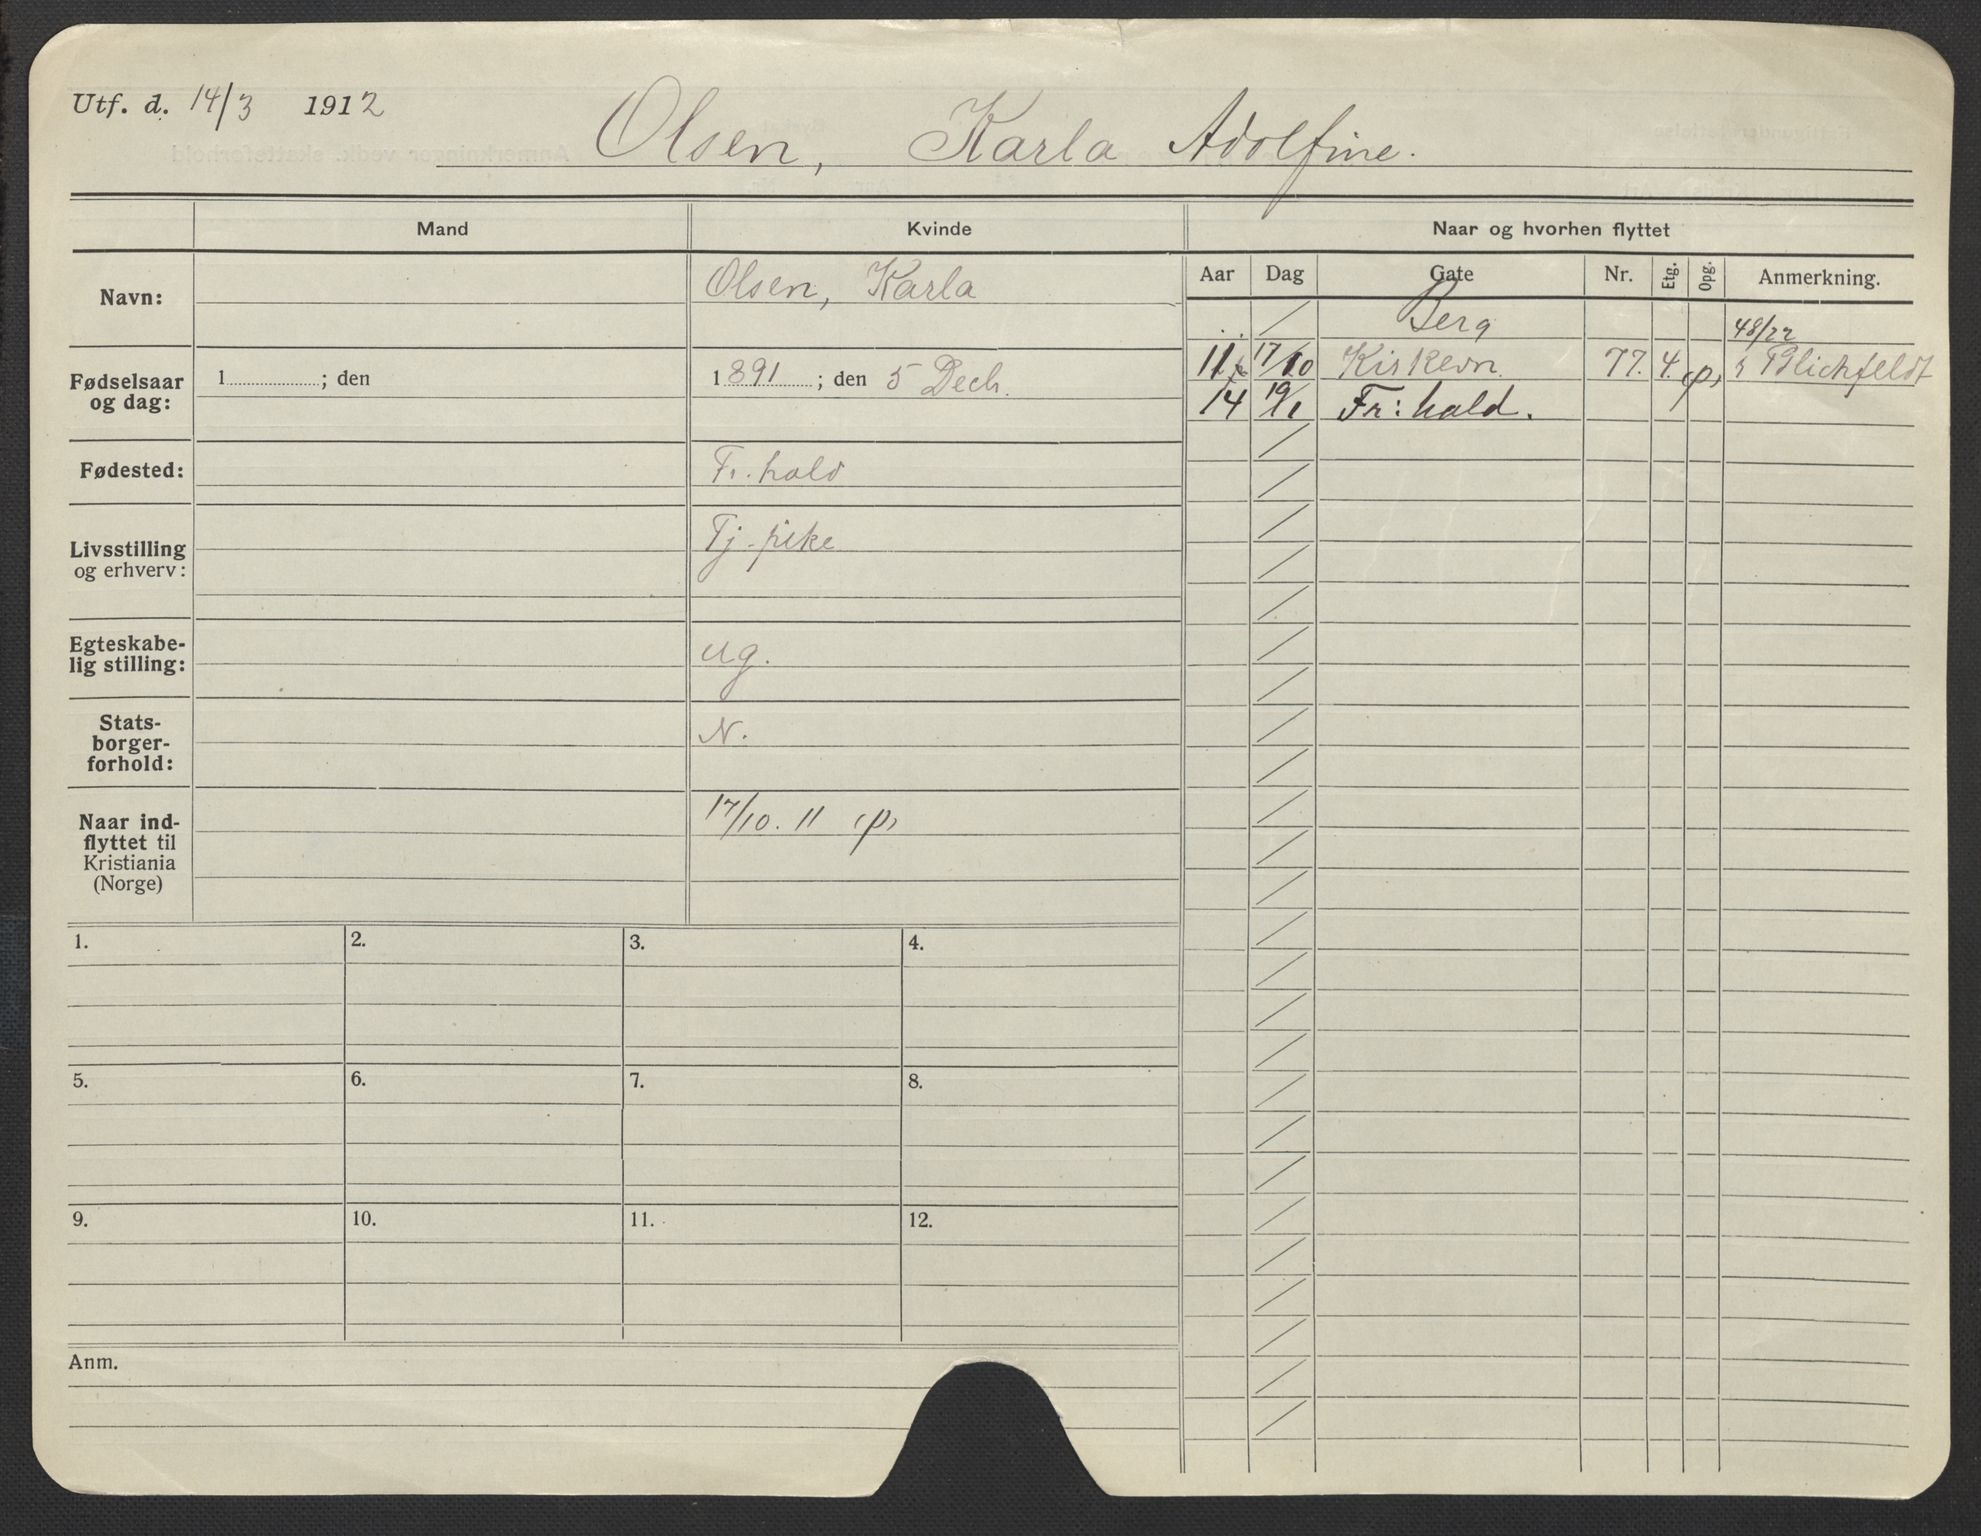 Utf. d. 14/3 1912
Olsen, Karla Adolfine.
Mand Kvinde Naar og hvorhen flyttet
Aar Dag Gate Nr. Etg. Opg. Anmerkning.
Navn: Olsen, Karla
Berg 48/22
11 17/10 Kirkevn. 77. 4. (p) Blichfeldt
14 19/1 Fr:hald.
Fødselsaar og dag: 1 ; den 1891 ; den 5 Decb.
Fødested: Fr.hald
Livsstilling og erhverv: Tj. pike
Egteskabe-
lig stilling: ug.
Stats-
borger-
forhold: N.
Naar ind-
flyttet til
Kristiania
(Norge) 17/10. 11 (p)
1. 2. 3. 4.
5. 6. 7. 8.
9. 10. 11. 12.
Anm.